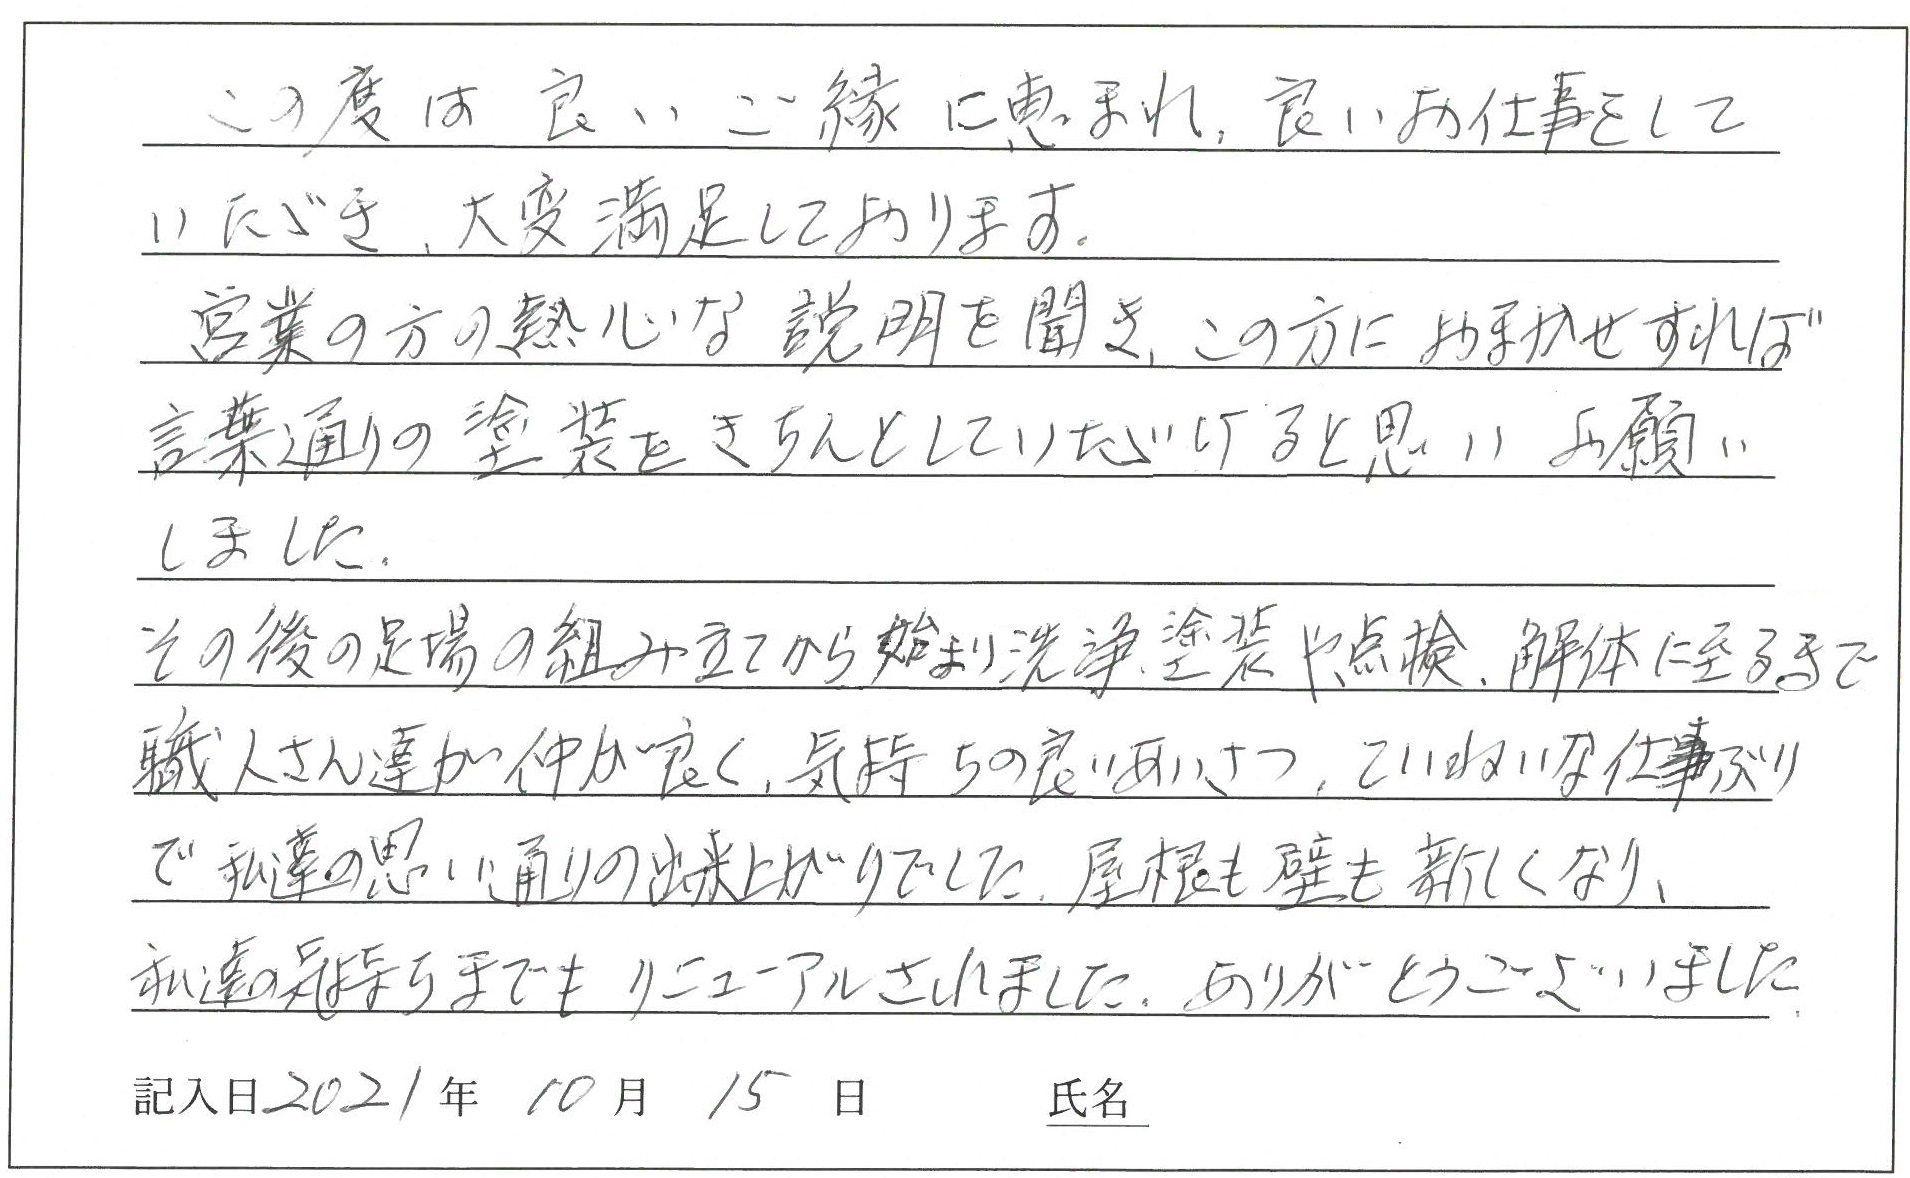 この度は良いご縁に恵まれ、良いお仕事をして
いただき、大変満足しております。
営業の方の熱心な説明を聞き、この方におまかせすれば
言葉通りの塗装をきちんとしていただけると思いお願い
しました。
その後の足場の組み立てから始まり洗浄、塗装や点検、解体に至るまで
職人さん達が仲が良く、気持ちの良いあいさつ、ていねいな仕事ぶり
で私達の思い通りの出来上がりでした。屋根も壁も新しくなり、
私達の気持ちまでもリニューアルされました。ありがとうございました。
記入日2021年 10月 15日 氏名